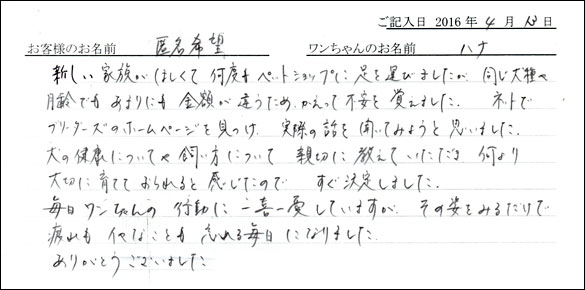 ご記入日 2016年 4月 13日
お客様のお名前 匿名希望 ワンちゃんのお名前 ハナ
新しい家族がほしくて 何度もペットショップに足を運びましたが、同じ犬種や
月齢でも あまりにも 金額が違うため、かえって不安を覚えました。 ネットで
ブリーダーズのホームページを見つけ、 実際の話を聞いてみようと思いました。
犬の健康についてや飼い方について 親切に教えていただき 何より
大切に育てておられると感じたので すぐ決定しました。
毎日ワンちゃんの行動に一喜一憂していますが、その姿をみるだけで
疲れも イヤなことも 忘れる毎日になりました。
ありがとうございました